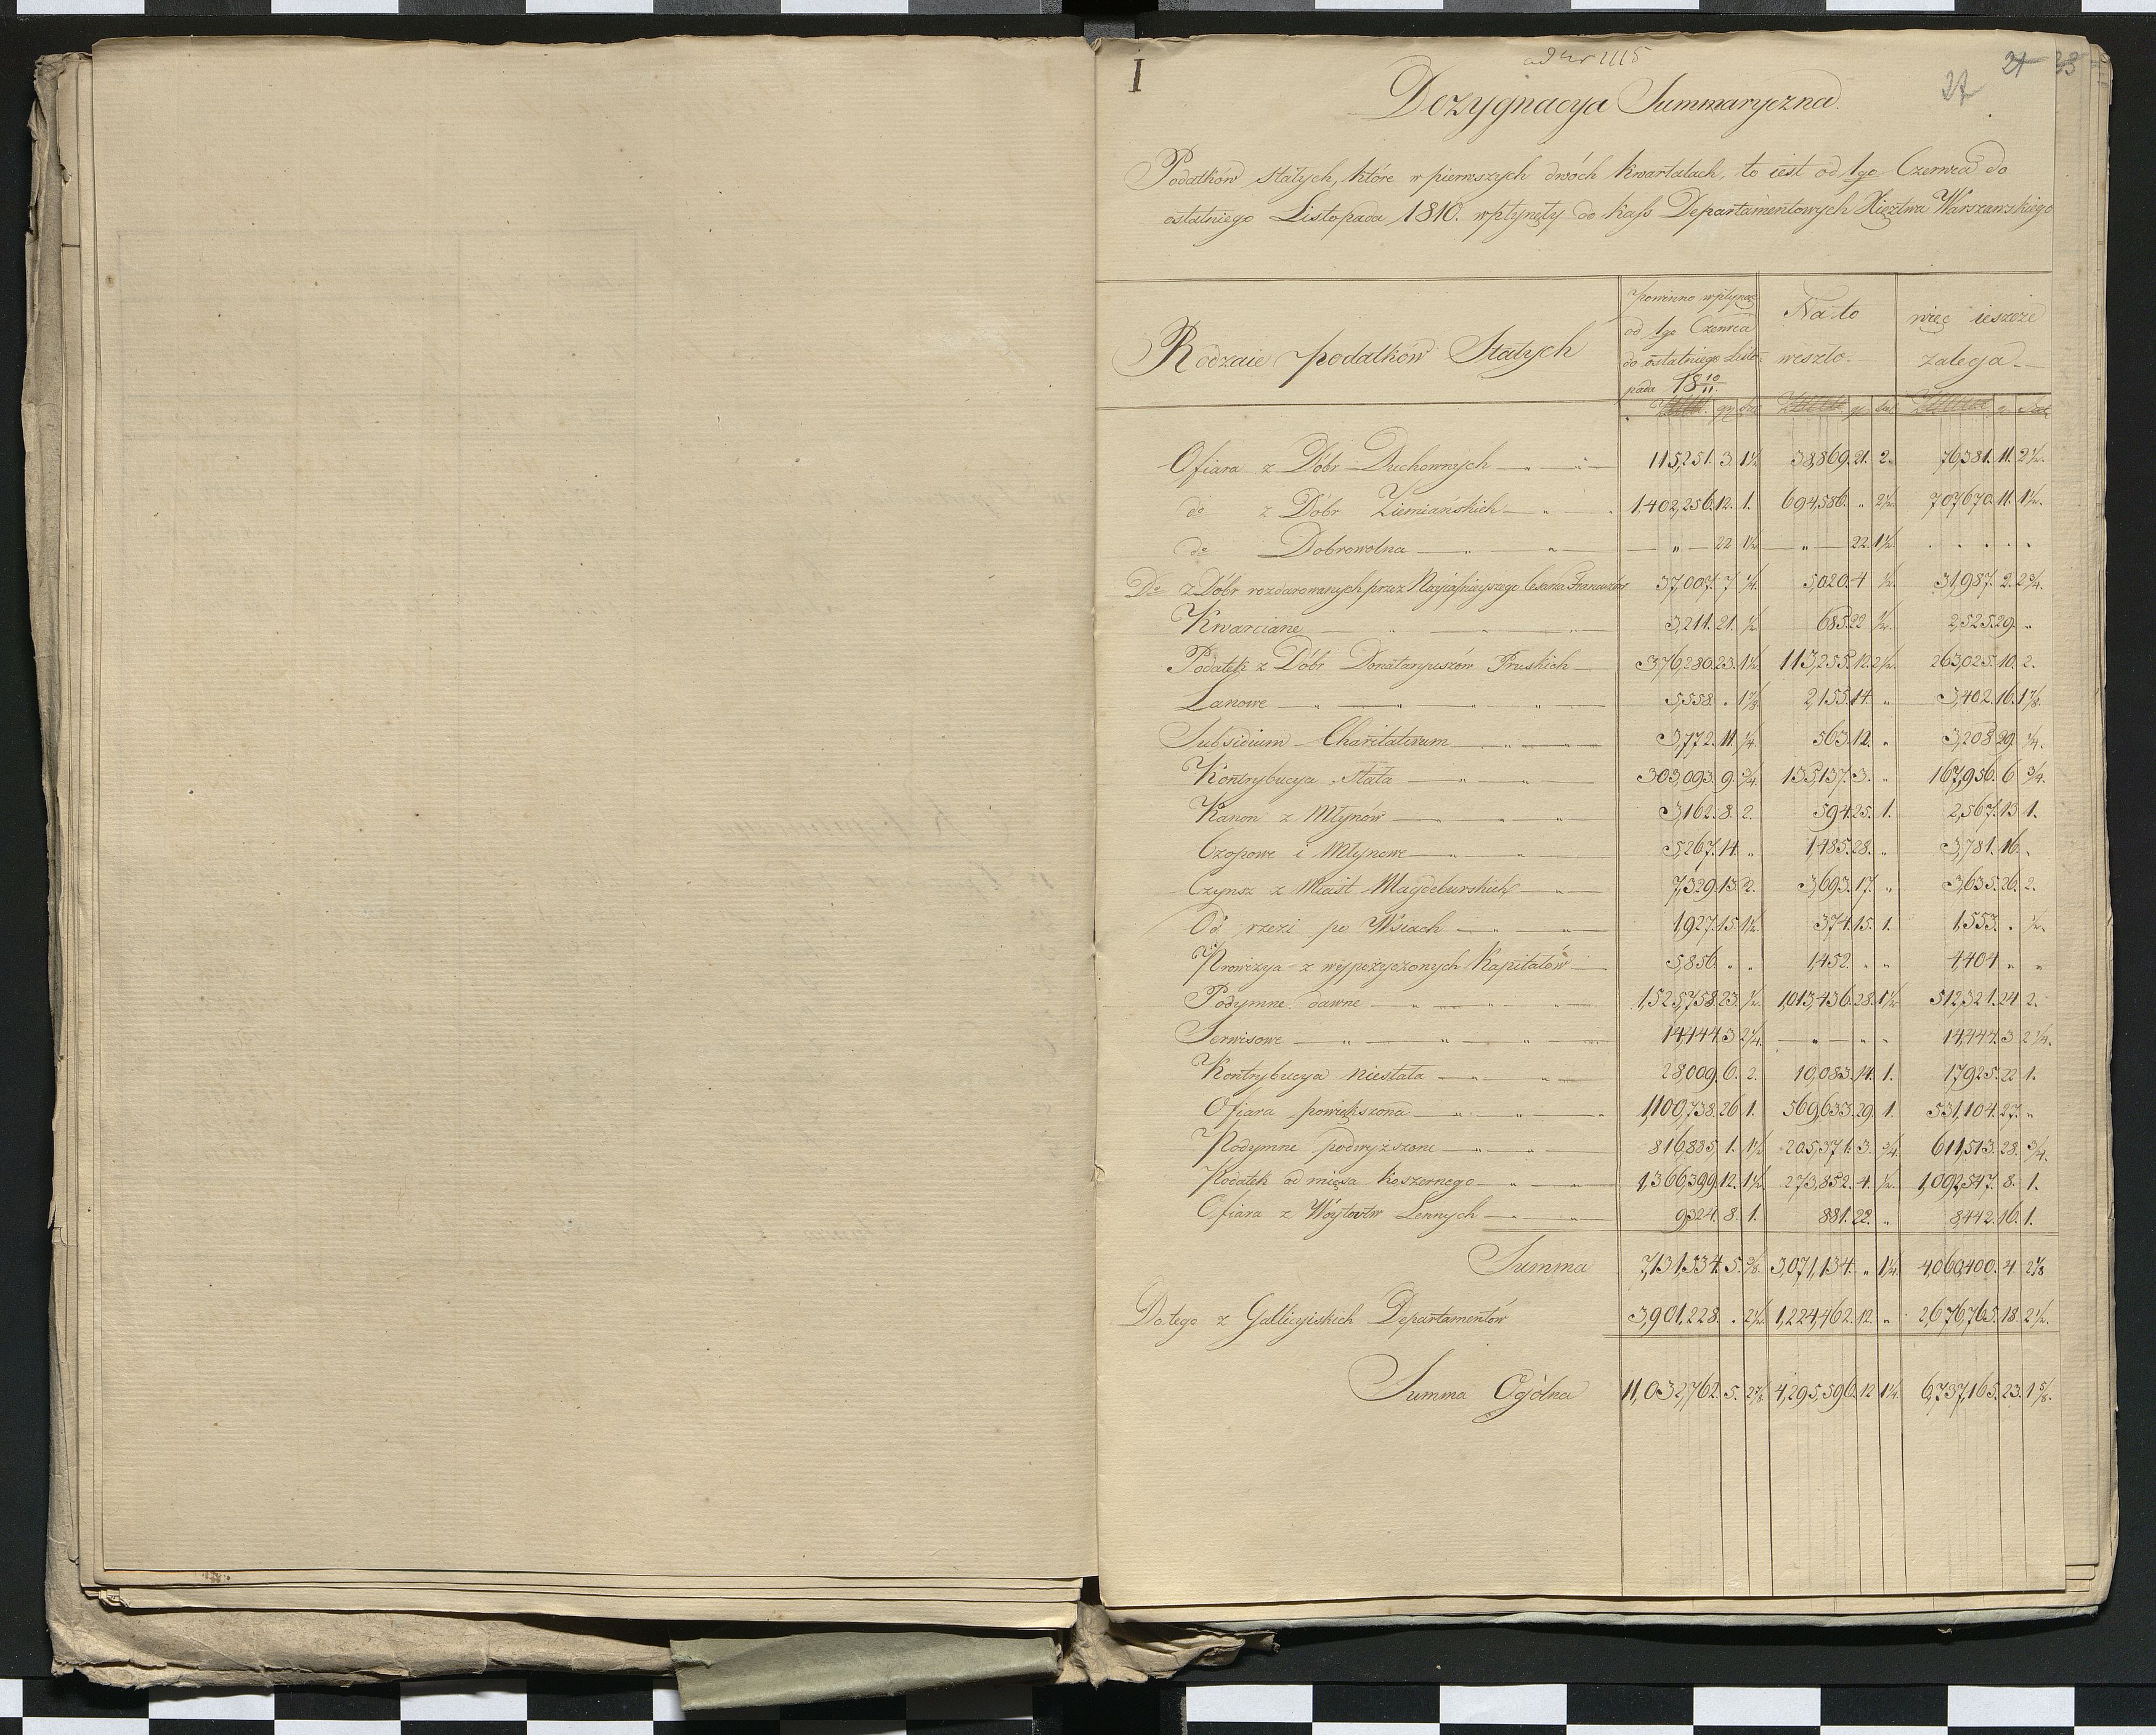 I
ad Nr 1115
21 23
27
Dezygnacya Summaryczna.
Podatków stałych, które w pierwszych dwóch kwartałach, to iest od 1go Czerwca do
ostatniego Listopada 1810. wpłynęły do kass Departamentowych Xięztwa Warszawskiego
Rodzaie podatków Stałych | powinno wpłynąć od 1go Czerwca do ostatniego Listopada 18 10/11. | Na to weszło. | więc ieszcze zalega.
Ofiara z Dóbr Duchownych 115,251. 3. 1½ 38,869. 21. 2. 76,381. 11. 2½.
do z Dóbr Ziemiańskich 1,402,256. 12. 1. 694,586. " 2½. 707,670. 11. 1½.
do Dobrowolna " 22 1½ " 22. 1½.
Do z Dóbr rozdarowanych przez Nayiaśnieyszego Cesarza Francuzów 37,007. 7. ¼. 5,020. 4 ½. 31,987. 2. 2¾.
Kwarciane 3,211. 21. ½. 685. 22 ½. 2,525. 29. "
Podatek z Dóbr Donataryuszów Pruskich 376,280. 23. 1½. 113,255. 12. 2½. 263,025. 10. 2.
Łanowe 5,558. " 1⅞. 2,155. 14. " 3,402. 16. 1⅞.
Subsidium Charitativum 3,772. 11. ¼. 563. 12. " 3,208. 29. ¼.
Kontrybucya Stała 303,093. 9. ¾. 135,137. 3. " 167,956. 6 ¾.
Kanon z Młynów 3,162. 8. 2. 594. 25. 1. 2,567. 13 1.
Czopowe i Młynowe 5,267. 14. " 1,485. 28. " 3,781. 16. "
Czynsz z Miast Magdeburskich 7,329. 13. 2. 3,693. 17. " 3,635. 26. 2.
Od rzezi po Wsiach 1,927. 15. 1½. 374. 15. 1. 1,553. " ½.
Prowizya z wypożyczonych Kapitałów 5,856. " " 1,452. " " 4,404 " "
Podymne dawne 1,525,758. 23. ½. 1,013,436. 28. 1½. 512,321. 24 2.
Serwisowe 14,444. 3 2¼. " " " 14,444. 3 2¼.
Kontrybucya niestała 28,009. 6. 2. 10,083. 14. 1. 17,925. 22 1.
Ofiara powiększona 1,100,738. 26 1. 569,633. 29 1. 531,104. 27. "
Podymne podwyższone 816,885. 1. 1½. 205,371. 3. ¾. 611,513. 28. ¾.
Podatek od mięsa koszernego 1,366,399. 12. 1½. 273,852. 4. ½. 1,092,547. 8. 1.
Ofiara z Wóytostw Lennych 9,324. 8. 1. 881. 22. " 8,442. 16. 1.
Summa 7,131,534. 5. ⅜. 3,071,134. " 1¼. 4,060,400. 4. 2⅛
Do tego z Gallicyiskich Departamentów 3,901,228. " 2½. 1,224,462. 12. " 2,676,765. 18. 2½.
Summa Ogólna 11,032,762. 5. 2⅞ 4,295,596. 12 1¼. 6,737,165. 23. 1⅝.